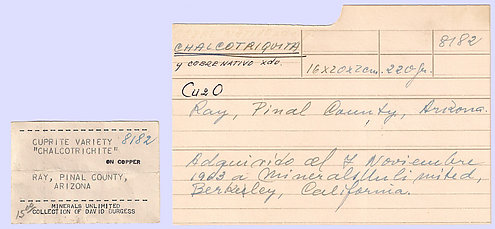 CUPRITE VARIETY 8182
"CHALCOTRICHITE"
ON COPPER
RAY, PINAL COUNTY,
ARIZONA
MINERALS UNLIMITED
COLLECTION OF DAVID BURGESS
CHALCOTRIQUITA
y COBRE NATIVO xdo.
16x20x2cm. 220gr.
8182
Cu2O
Ray, Pinal County, Arizona.
Adquirido el 7 Noviembre
1963 a Minerals Unlimited,
Berkeley, California.